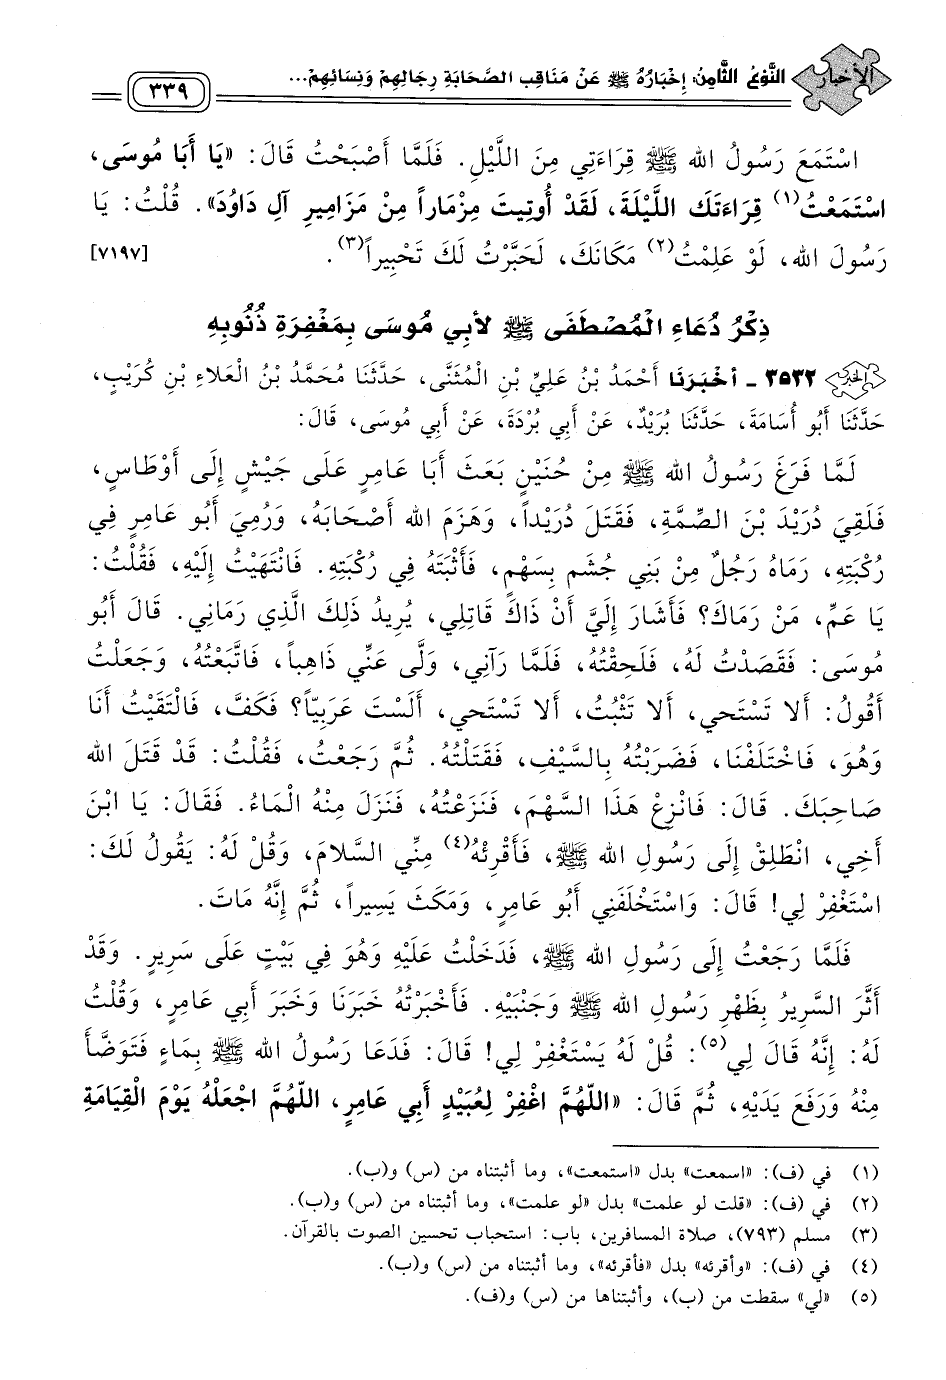 الأخبار
النَّوْعُ الثَّامِنُ: إِخْبَارُهُ ﷺ عَنْ مَنَاقِبِ الصَّحَابَةِ رِجَالِهِمْ وَنِسَائِهِمْ...
٣٣٩
اسْتَمَعَ رَسُولُ الله ﷺ قِرَاءَتِي مِنَ اللَّيْلِ. فَلَمَّا أَصْبَحْتُ قَالَ: «يَا أَبَا مُوسَى،
اسْتَمَعْتُ(١) قِرَاءَتَكَ اللَّيْلَةَ، لَقَدْ أُوتِيتَ مِزْمَاراً مِنْ مَزَامِيرِ آلِ دَاوُدَ». قُلْتُ: يَا
رَسُولَ الله، لَوْ عَلِمْتُ(٢) مَكَانَكَ، لَحَبَّرْتُ لَكَ تَحْبِيراً(٣). [٧١٩٧]
ذِكْرُ دُعَاءِ الْمُصْطَفَى ﷺ لأَبِي مُوسَى بِمَغْفِرَةِ ذُنُوبِهِ
الخبر ٣٥٣٢ - أَخْبَرَنَا أَحْمَدُ بْنُ عَلِيِّ بْنِ الْمُثَنَّى، حَدَّثَنَا مُحَمَّدُ بْنُ الْعَلاءِ بْنِ كُرَيْبٍ،
حَدَّثَنَا أَبُو أُسَامَةَ، حَدَّثَنَا بُرَيْدٌ، عَنْ أَبِي بُرْدَةَ، عَنْ أَبِي مُوسَى، قَالَ:
لَمَّا فَرَغَ رَسُولُ الله ﷺ مِنْ حُنَيْنٍ بَعَثَ أَبَا عَامِرٍ عَلَى جَيْشٍ إِلَى أَوْطَاسٍ،
فَلَقِيَ دُرَيْدَ بْنَ الصِّمَّةِ، فَقَتَلَ دُرَيْداً، وَهَزَمَ الله أَصْحَابَهُ، وَرُمِيَ أَبُو عَامِرٍ فِي
رُكْبَتِهِ، رَمَاهُ رَجُلٌ مِنْ بَنِي جُشَمٍ بِسَهْمٍ، فَأَثْبَتَهُ فِي رُكْبَتِهِ. فَانْتَهَيْتُ إِلَيْهِ، فَقُلْتُ:
يَا عَمِّ، مَنْ رَمَاكَ؟ فَأَشَارَ إِلَيَّ أَنْ ذَاكَ قَاتِلِي، يُرِيدُ ذَلِكَ الَّذِي رَمَانِي. قَالَ أَبُو
مُوسَى: فَقَصَدْتُ لَهُ، فَلَحِقْتُهُ، فَلَمَّا رَآنِي، وَلَّى عَنِّي ذَاهِباً، فَاتَّبَعْتُهُ، وَجَعَلْتُ
أَقُولُ: أَلا تَسْتَحِي، أَلا تَثْبُتُ، أَلا تَسْتَحِي، أَلَسْتَ عَرَبِيّاً؟ فَكَفَّ، فَالْتَقَيْتُ أَنَا
وَهُوَ، فَاخْتَلَفْنَا، فَضَرَبْتُهُ بِالسَّيْفِ، فَقَتَلْتُهُ. ثُمَّ رَجَعْتُ، فَقُلْتُ: قَدْ قَتَلَ الله
صَاحِبَكَ. قَالَ: فَانْزِعْ هَذَا السَّهْمَ، فَنَزَعْتُهُ، فَنَزَلَ مِنْهُ الْمَاءُ. فَقَالَ: يَا ابْنَ
أَخِي، انْطَلِقْ إِلَى رَسُولِ الله ﷺ، فَأَقْرِئْهُ(٤) مِنِّي السَّلامَ، وَقُلْ لَهُ: يَقُولُ لَكَ:
اسْتَغْفِرْ لِي! قَالَ: وَاسْتَخْلَفَنِي أَبُو عَامِرٍ، وَمَكَثَ يَسِيراً، ثُمَّ إِنَّهُ مَاتَ.
فَلَمَّا رَجَعْتُ إِلَى رَسُولِ الله ﷺ، فَدَخَلْتُ عَلَيْهِ وَهُوَ فِي بَيْتٍ عَلَى سَرِيرٍ. وَقَدْ
أَثَّرَ السَّرِيرُ بِظَهْرِ رَسُولِ الله ﷺ وَجَنْبَيْهِ. فَأَخْبَرْتُهُ خَبَرَنَا وَخَبَرَ أَبِي عَامِرٍ، وَقُلْتُ
لَهُ: إِنَّهُ قَالَ لِي(٥): قُلْ لَهُ يَسْتَغْفِرْ لِي! قَالَ: فَدَعَا رَسُولُ الله ﷺ بِمَاءٍ فَتَوَضَّأَ
مِنْهُ وَرَفَعَ يَدَيْهِ، ثُمَّ قَالَ: «اللّهُمَّ اغْفِرْ لِعُبَيْدٍ أَبِي عَامِرٍ، اللّهُمَّ اجْعَلْهُ يَوْمَ الْقِيَامَةِ
(١) في (ف): «اسمعت» بدل «استمعت»، وما أثبتناه من (س) و(ب).
(٢) في (ف): «قلت لو علمت» بدل «لو علمت»، وما أثبتناه من (س) و(ب).
(٣) مسلم (٧٩٣)، صلاة المسافرين، باب: استحباب تحسين الصوت بالقرآن.
(٤) في (ف): «وأقرئه» بدل «فأقرئه»، وما أثبتناه من (س) و(ب).
(٥) «لي» سقطت من (ب)، وأثبتناها من (س) و(ف).